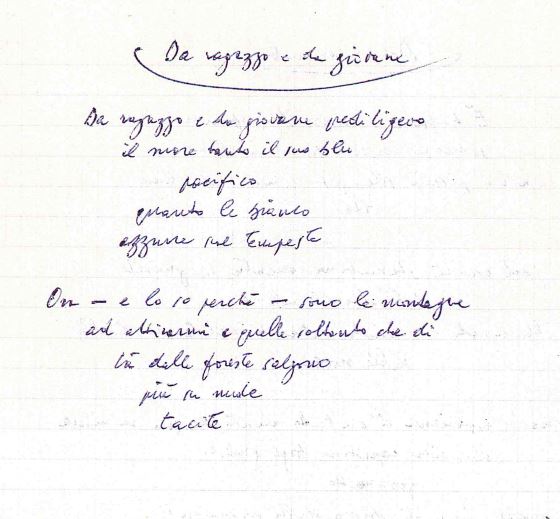 Da ragazzo e da giovane
Da ragazzo e da giovane prediligevo
il mare tanto il suo blu
pacifico
quanto le bianco
azzurre sue tempeste
Ora – e lo so perché – sono le montagne
ad attirarmi e quelle soltanto che di
là dalle foreste salgono
più su nude
tacite